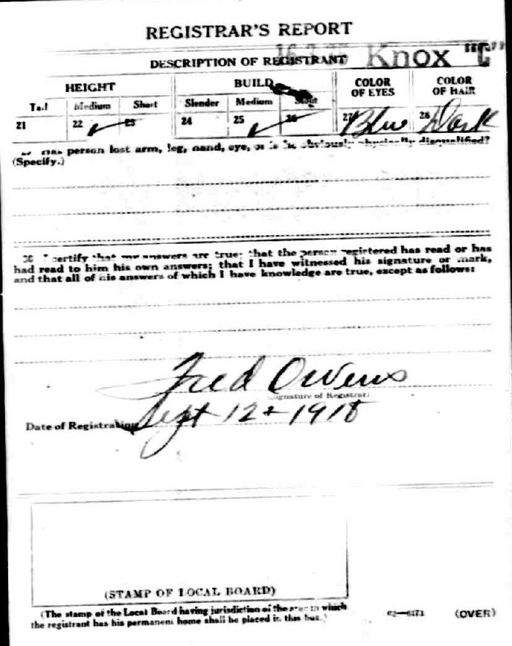 REGISTRAR'S REPORT
DESCRIPTION OF REGISTRANT Knox "C"
HEIGHT BUILD COLOR OF EYES COLOR OF HAIR
Tall Medium Short Slender Medium Stout
21 22 ✓ 23 24 25 ✓ 26 27 Blue 28 Dark
Has person lost arm, leg, hand, eye, or is he obviously physically disqualified?
(Specify.)
30 I certify that my answers are true; that the person registered has read or has
had read to him his own answers; that I have witnessed his signature or mark,
and that all of his answers of which I have knowledge are true, except as follows:
Fred Owens
(Signature of Registrar)
Date of Registration Sept 12 1918
(STAMP OF LOCAL BOARD)
(The stamp of the Local Board having jurisdiction of the area in which
the registrant has his permanent home shall be placed in this box.)
(OVER)